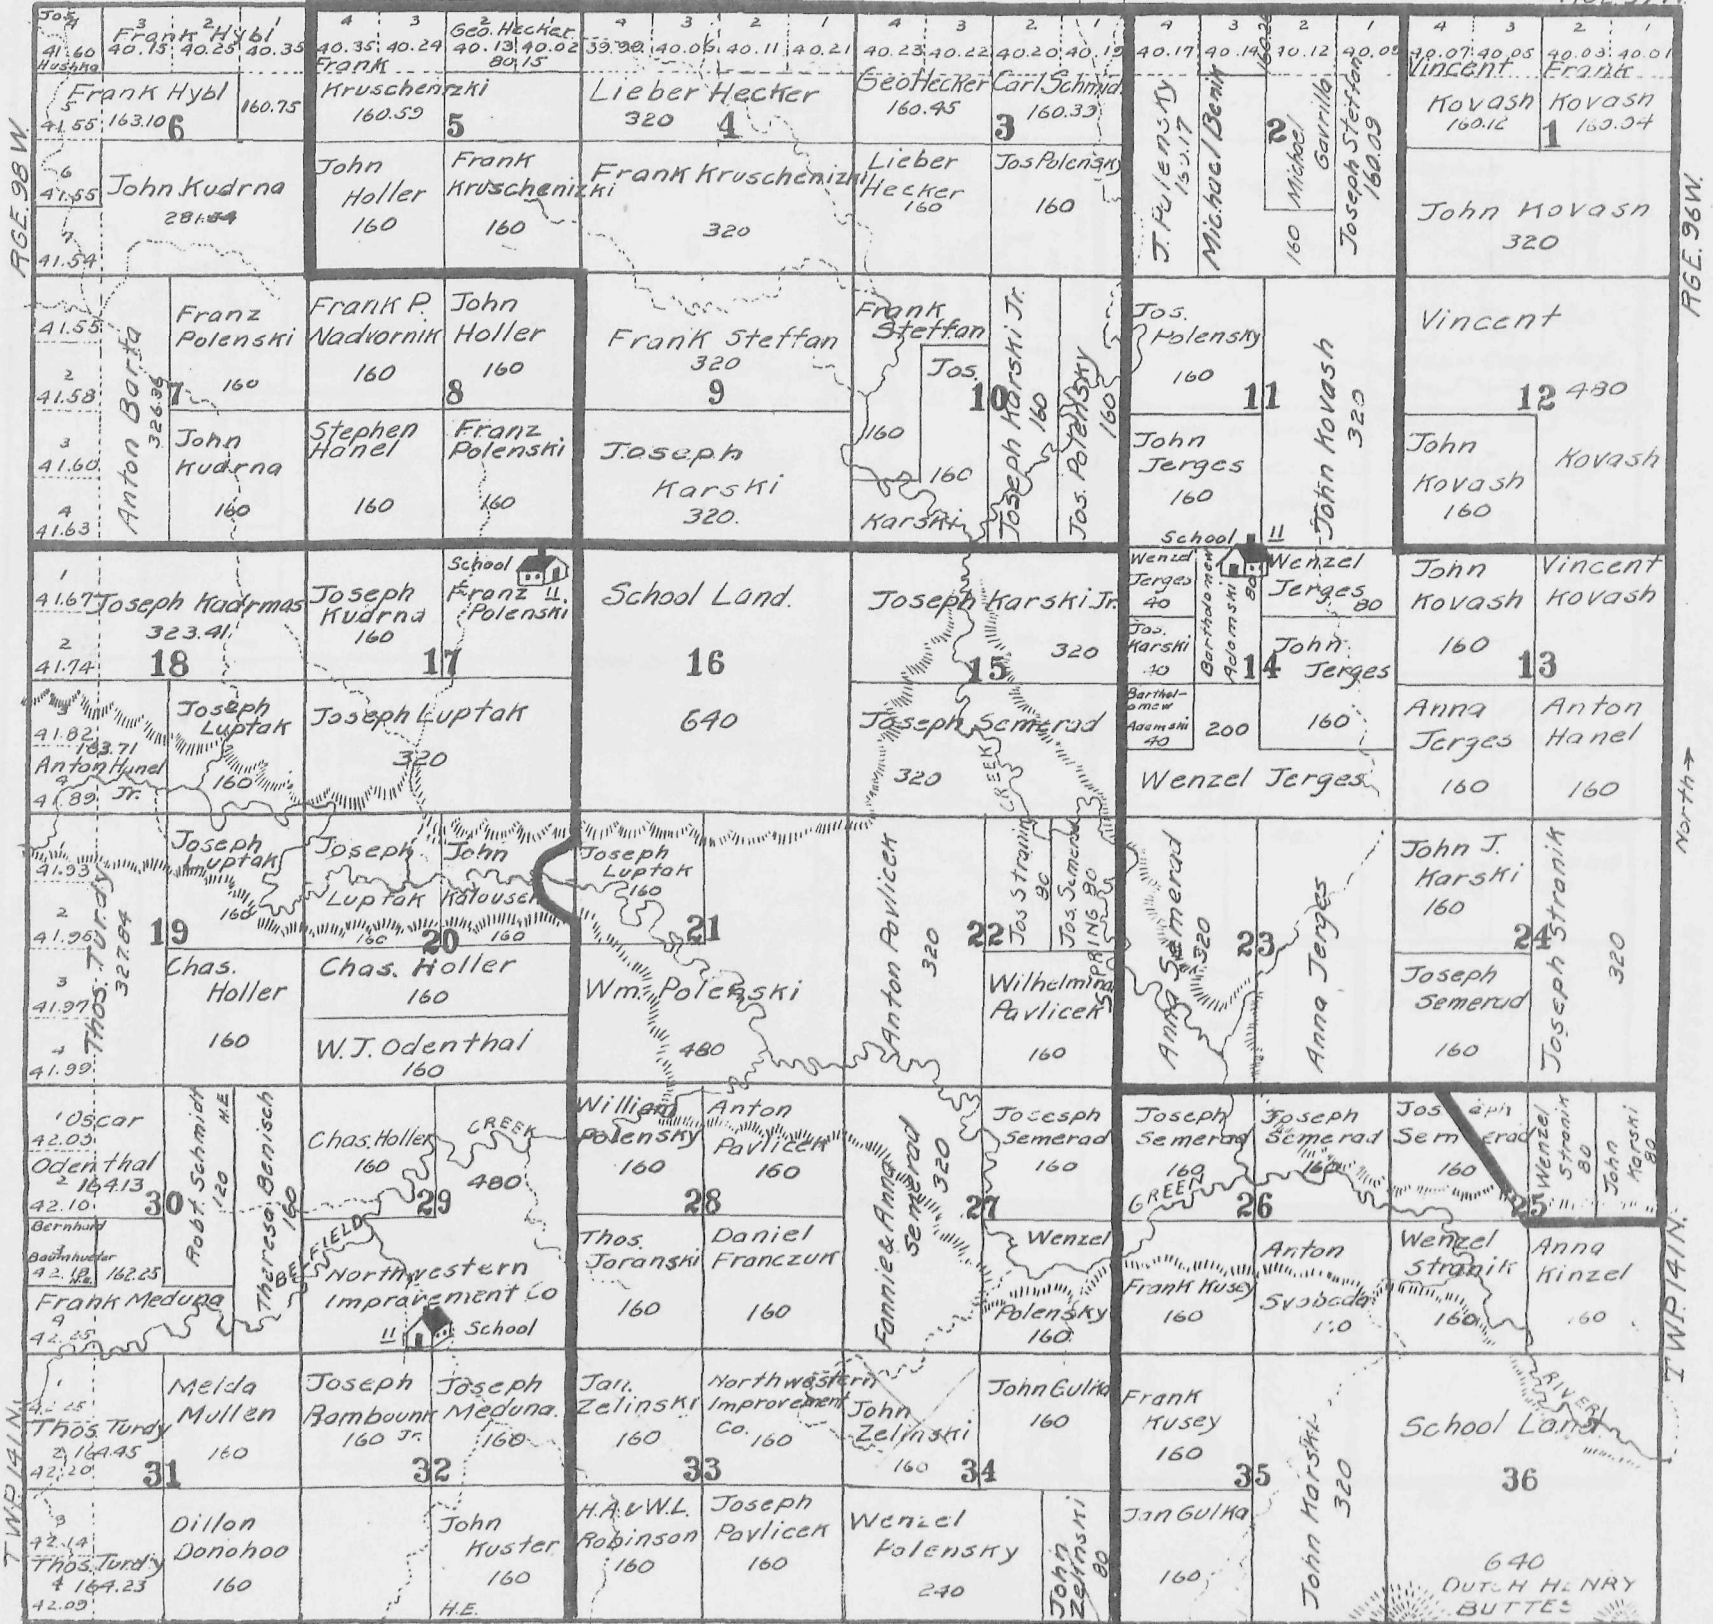 RGE. 98 W.
RGE. 96 W.
TWP. 141 N.
TWP. 141 N.
North →
Jos.
Hushka
4 3 2 1
41.60 40.75 40.25 40.35
Frank Hybl
Frank Hybl
163.10
160.75
6
5
41.55
6
41.55
7
41.54
John Kudrna
4 3 2 1
40.35 40.24 40.13 40.02
Geo. Hecker
80.15
Frank
Kruschenizki
160.59
5
John
Holler
160
Frank
Kruschenizki
160
4 3 2 1
39.90 40.06 40.11 40.21
Lieber Hecker
320
4
Frank Kruschenizki
320
4 3 2 1
40.23 40.22 40.20 40.19
Geo Hecker
160.45
Carl Schmid
160.39
3
Lieber
Hecker
160
Jos Polensky
160
4 3 2 1
40.17 40.14 40.12 40.09
J. Pulensky
160.17
Michael Benin
160.26
2
Michael
Gavrilla
160
Joseph Steffan
160.09
4 3 2 1
40.07 40.05 40.03 40.01
Vincent
Kovash
160.12
Frank
Kovash
1
John Kovash
320
41.55
2
41.58
3
41.60
4
41.63
Anton Barta
326.36
7
Franz
Polenski
160
John
Kudrna
160
Frank P.
Nadvornik
160
John
Holler
160
8
Stephen
Hanel
160
Franz
Polenski
160
Frank Steffan
320
9
Joseph
Karski
320.
Frank
Steffan
160
Jos.
10
160
Karski
Joseph Karski Jr.
160
Jos. Polensky
160
Jos.
Polensky
160
11
John
Jerges
160
School 11
John Kovash
320
Vincent
12 480
Kovash
John
Kovash
160
1
41.67
2
41.74
Joseph Kadrmas
323.41
18
3
41.82
163.71
Anton Hanel
Jr.
4
41.89
Joseph
Luptak
160
Joseph
Kudrna
160
School
Franz 11.
Polenski
17
Joseph Luptak
320
School Land.
16
640
Joseph Karski Jr.
320
15
Joseph Semerad
320
CREEK
Wenzel
Jerges
40
Jos.
Karski
40
Barthol-
omew
Adamski
40
Bartholomew
Adamski
80
Wenzel
Jerges
80
14
John
Jerges
160
200
Wenzel Jerges
John
Kovash
160
Vincent
Kovash
13
Anna
Jerges
160
Anton
Hanel
160
1
41.93
2
41.96
3
41.97
4
41.99
Thos. Turdy
327.84
19
Joseph
Luptak
160
Chas.
Holler
160
Joseph
Luptak
160
John
Kalousek
160
20
Chas. Holler
160
W. J. Odenthal
160
Joseph
Luptak
160
21
Wm. Polenski
480
Anton Pavlicek
320
22
Jos Straini
80
Jos. Semerad
80
SPRING
Wilhelmina
Pavlicek
160
Anna Semerad
320
23
Anna Jerges
John J.
Karski
160
24
Joseph
Semerad
160
Joseph Stranik
320
1 Oscar
42.03
Odenthal
2 164.13
42.10
30
Bernhard
3
42.18
162.25
Frank Meduna
4
42.25
Robt. Schmidt
120
H.E.
Theresa Benisch
160
BELFIELD
Chas. Holler
160
CREEK
480
29
Northwestern
Impravement Co
11 School
William
Polensky
160
Anton
Pavlicek
160
28
Thos.
Joranski
160
Daniel
Franczuk
160
Fannie & Anna
Semerad
320
Jocesph
Semerad
160
27
Wenzel
Polensky
160
Joseph
Semerad
160
Joseph
Semerad
160
GREEN
26
Frank Kusey
160
Anton
Svoboda
Joseph
Semerad
160
Wenzel
Stranik
80
John
Karski
80
25
Wenzel
Stranik
160
Anna
Kinzel
1
42.25
Thos. Turdy
2 164.45
42.20
31
3
42.14
Thos. Turdy
4 164.23
42.09
Melda
Mullen
160
Dillon
Donohoo
160
Joseph
Rambounk
160 Jr.
Joseph
Meduna.
160
32
John
Kuster
160
H.E.
Jan.
Zelinski
160
Northwestern
Improvement
Co. 160
33
H.A. & W.L.
Robinson
160
Joseph
Pavlicek
160
John
Zelinski
160
John Gulka
160
34
Wenzel
Polensky
240
John
Zelinski
80
Frank
Kusey
160
35
Jan Gulka
160
John Karski
320
RIVER
School Land
36
640
DUTCH HENRY
BUTTES